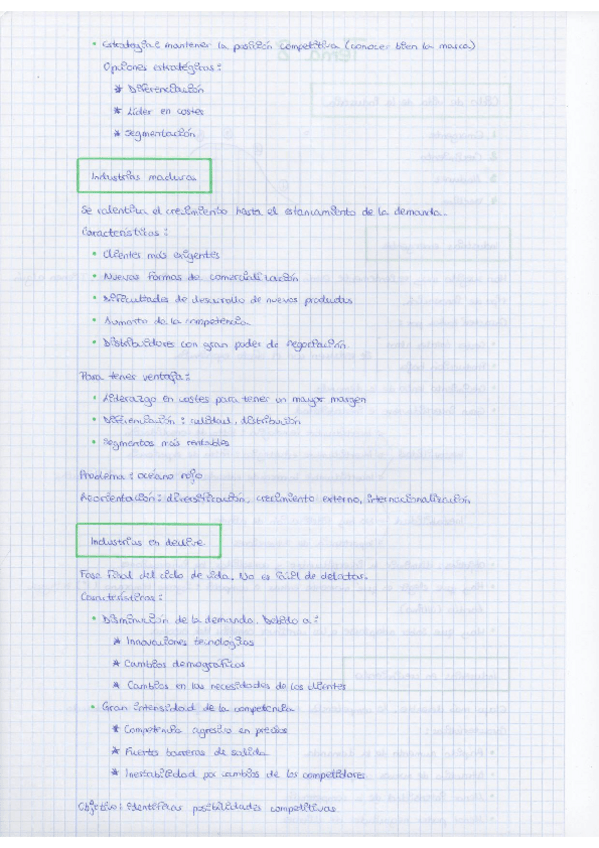 • Estrategia: mantener la posición competitiva (conocer bien la marca)
Opciones estratégicas:
* Diferenciación
* Líder en costes
* Segmentación
Industrias maduras
Se ralentiza el crecimiento hasta el estancamiento de la demanda.
Características:
• Clientes más exigentes
• Nuevas formas de comercialización
• Dificultades de desarrollo de nuevos productos
• Aumento de la competencia
• Distribuidores con gran poder de negociación
Para tener ventaja:
• Liderazgo en costes para tener un mayor margen
• Diferenciación: calidad, distribución
• Segmentos más rentables
Problema: océano rojo
Reorientación: diversificación, crecimiento externo, internacionalización
Industrias en declive
Fase final del ciclo de vida. No es fácil de detectar.
Características:
• Disminución de la demanda. Debido a:
* Innovaciones tecnologías
* Cambios demográficos
* Cambios en las necesidades de los clientes
• Gran intensidad de la competencia
* Competencia agresiva en precios
* Fuerte barreras de salida
* Inestabilidad por cambios de los competidores
Objetivo: identificar posibilidades competitivas